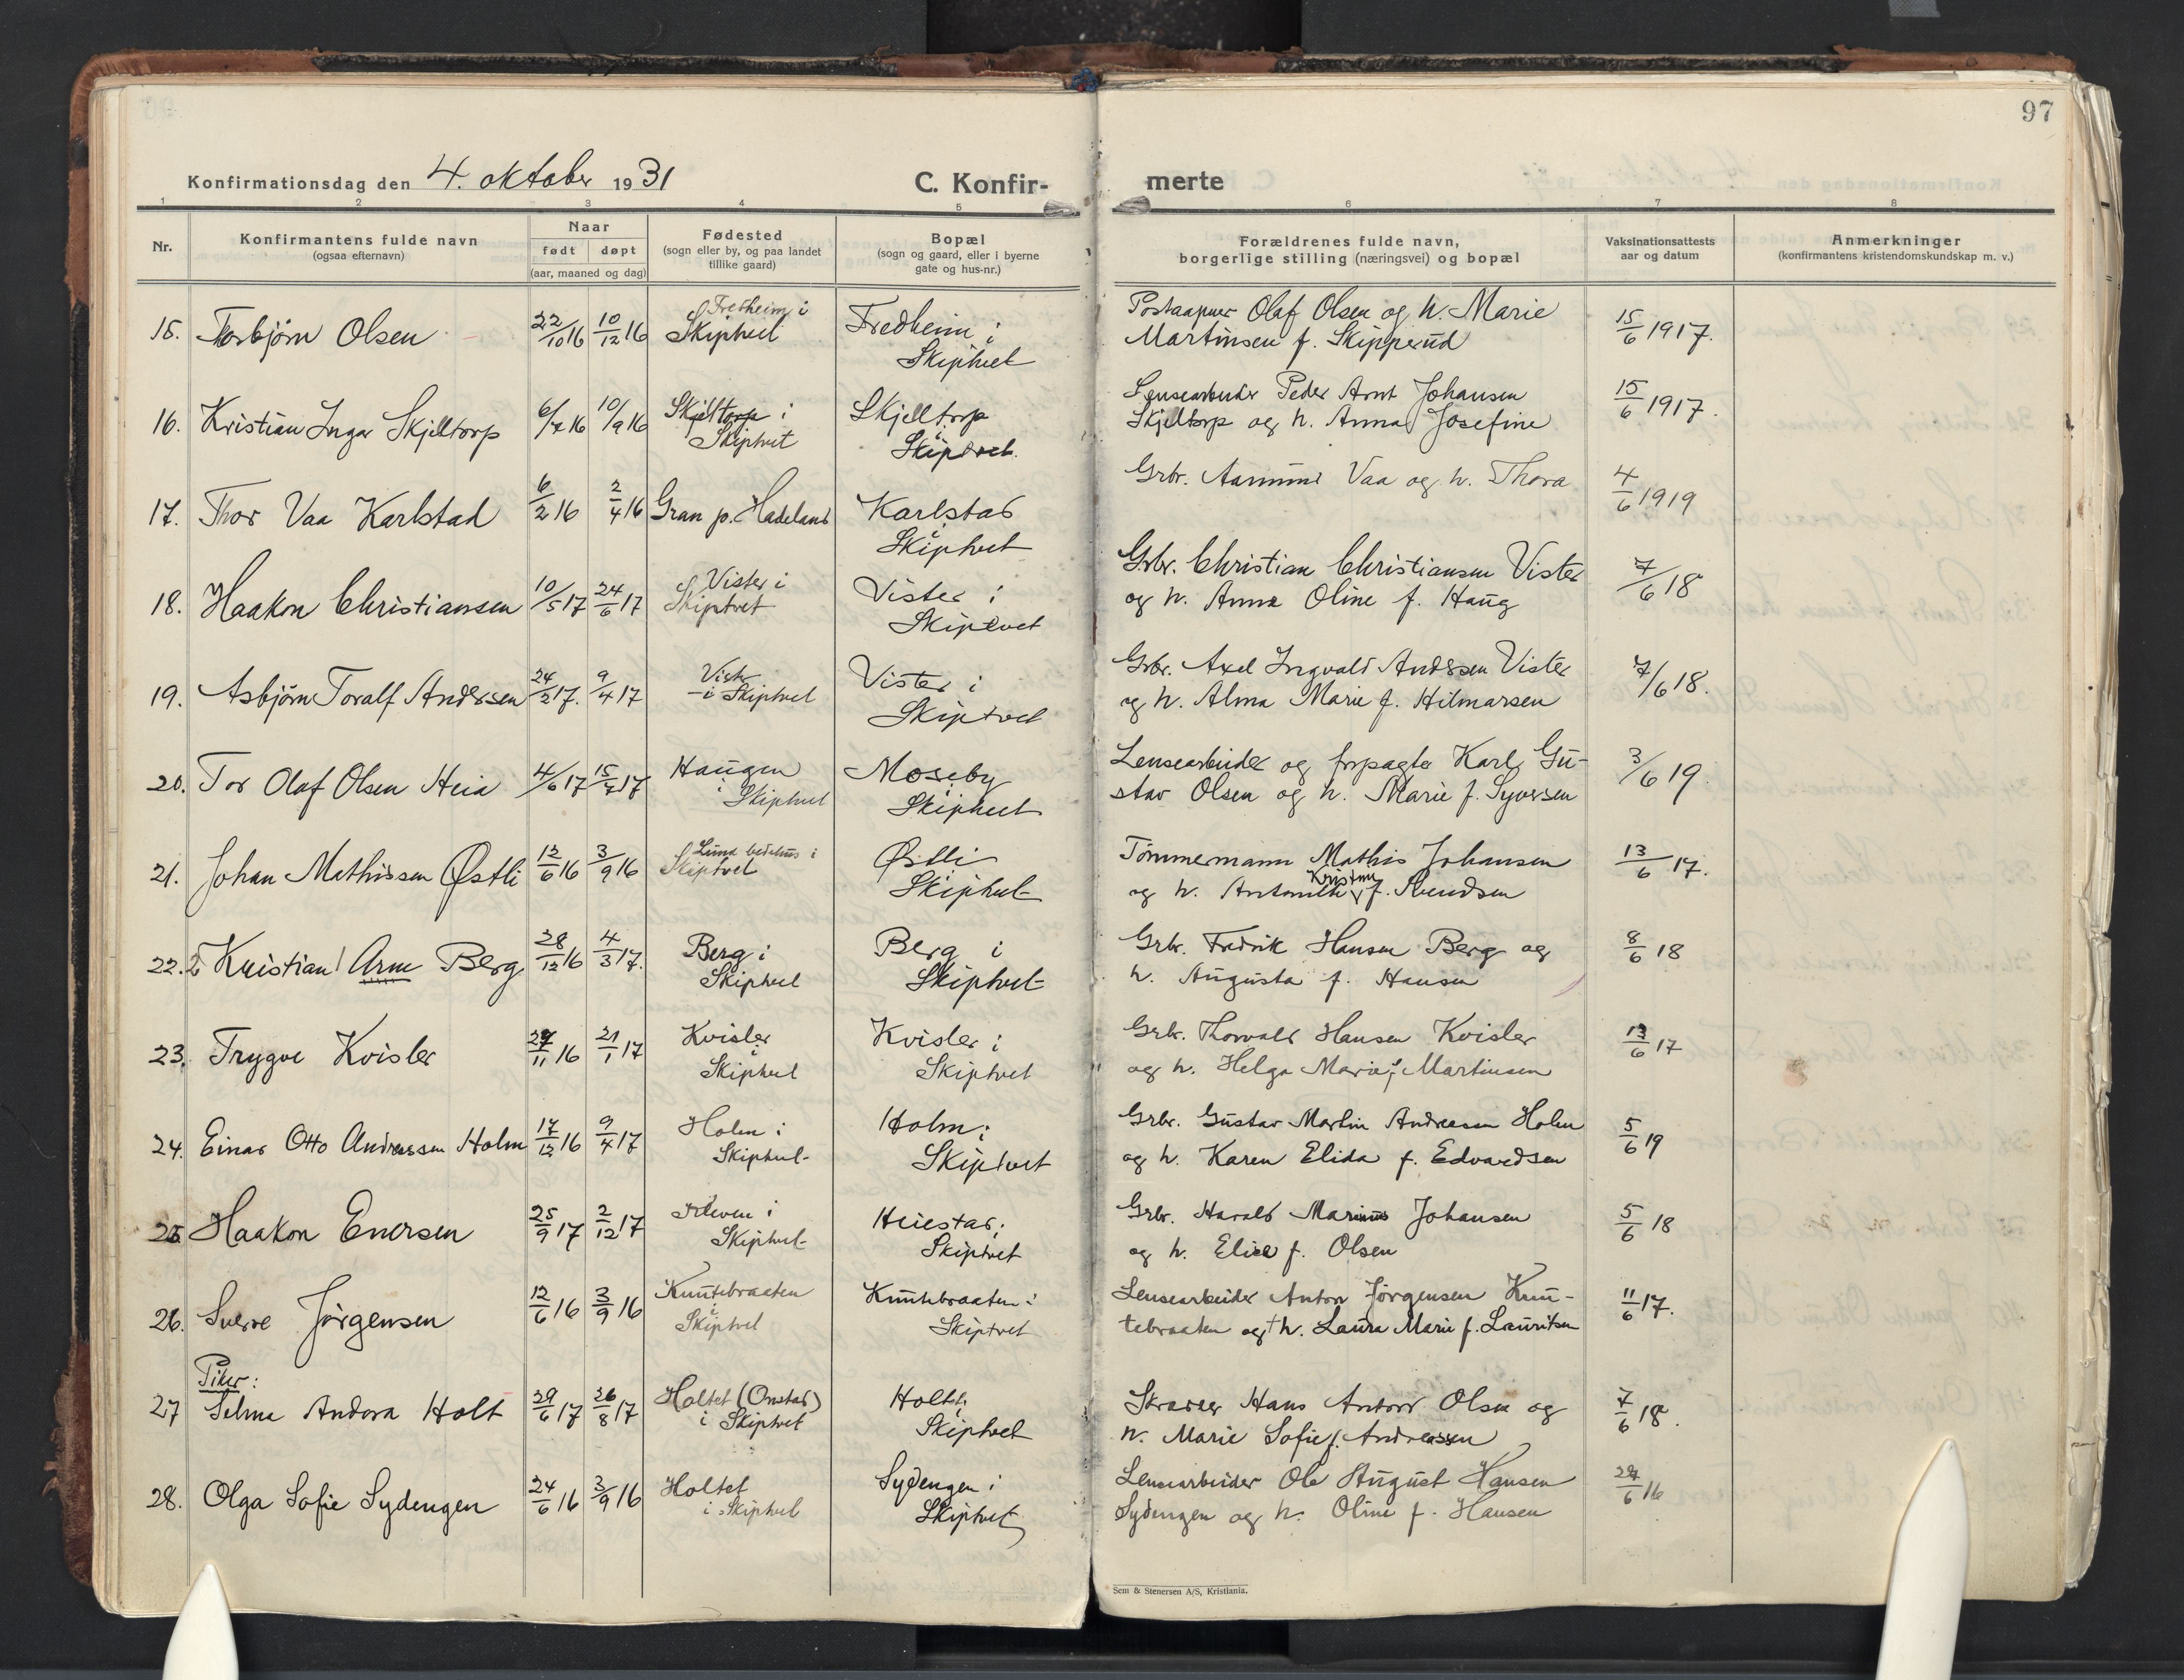 97
Konfirmationsdag den 4. oktober 1931
C. Konfir-
merte
1 2 3 4 5 6 7 8
Nr.
Konfirmantens fulde navn
(ogsaa efternavn)
Naar
født døpt
(aar, maaned og dag)
Fødested
(sogn eller by, og paa landet
tillike gaard)
Bopæl
(sogn og gaard, eller i byerne
gate og hus-nr.)
Forældrenes fulde navn,
borgerlige stilling (næringsvei) og bopæl
Vaksinationsattests
aar og datum
Anmerkninger
(konfirmantens kristendomskundskap m. v.)
15. Torbjörn Olsen 22/10 16 10/12 16 Fredheim i Skiptvet Fredheim i Skiptvet
Postaapner Olaf Olsen og h. Marie
Martinsen f. Skipperud 15/6 1917.
16. Kristian Ingar Skjeltorp 6/7 16 10/9 16 Skjeltorp i Skiptvet Skjeltorp i Skiptvet.
Lensearbeider Peder Arnt Johansen
Skjeltorp og h. Anna Josefine 15/6 1917.
17. Thor Vaa Karlstad 6/2 16 2/4 16 Gran p. Hadeland Karlstad i Skiptvet
Grbr. Aamund Vaa og h. Thora 4/6 1919
18. Haakon Christiansen 10/5 17 24/6 17 Vister i Skiptvet Vister i Skiptvet
Grbr. Christian Christiansen Vister
og h. Anna Oline f. Haug 7/6 18
19. Asbjörn Toralf Andersen 24/2 17. 9/4 17 Vister i Skiptvet Vister i Skiptvet
Grbr. Axel Ingvald Andersen Vister
og h. Alma Marie f. Hilmarsen 7/6 18.
20. Tor Olaf Olsen Heia 4/6 17 15/7 17 Haugen i Skiptvet Moseby i Skiptvet
Lensearbeider og forpagter Karl Gu-
stav Olsen og h. Marie f. Syversen 3/6 19.
21. Johan Mathissen Østli 12/6 16 3/9 16 Lund bedehus i Skiptvet Østli Skiptvet
Tömmermann Mathis Johansen
og h. Kristine f. Svendsen 13/6 17.
22. Kristian Arne Berg 28/12 16 4/3 17. Berg i Skiptvet Berg i Skiptvet
Grbr. Fredrik Hansen Berg og
h. Augusta f. Hansen 8/6 18
23. Trygve Kvisler /11 16 21/1 17 Kvisler i Skiptvet Kvisler i Skiptvet
Grbr. Thorvald Hansen Kvisler
og h. Helga Marie f. Martinsen 13/6 17
24. Einar Otto Andreassen Holm 17/12 16 9/4 17 Holm i Skiptvet Holm i Skiptvet
Grbr. Gustav Martin Andreasen Holm
og h. Karen Elida f. Edvardsen 5/6 19
25 Haakon Enersen 25/9 17 2/12 17 Kleven i Skiptvet Heiestad i Skiptvet
Grbr. Harald Marinus Johansen
og h. Elise f. Olsen 5/6 18
26. Sverre Jörgensen 12/6 16 3/9 16 Knutebraaten i Skiptvet Knutebraaten i Skiptvet
Lensearbeider Anton Jörgensen Knu-
tebraaten og † h. Laura Marie f. Lauritsen 11/6 17.
Piker:
27 Selma Andora Holt 29/6 17 26/8 17 Holtet (Onstad) i Skiptvet Holtet i Skiptvet
Skrædder Hans Anton Olsen og
h. Marie Sofie f. Andreassen 7/6 18.
28. Olga Sofie Sydengen 24/6 16 3/9 16 Holtet i Skiptvet Sydengen i Skiptvet
Lensearbeider Ole August Hansen
Sydengen og h. Oline f. Hansen /6 16
Sem & Stenersen A/S, Kristiania.